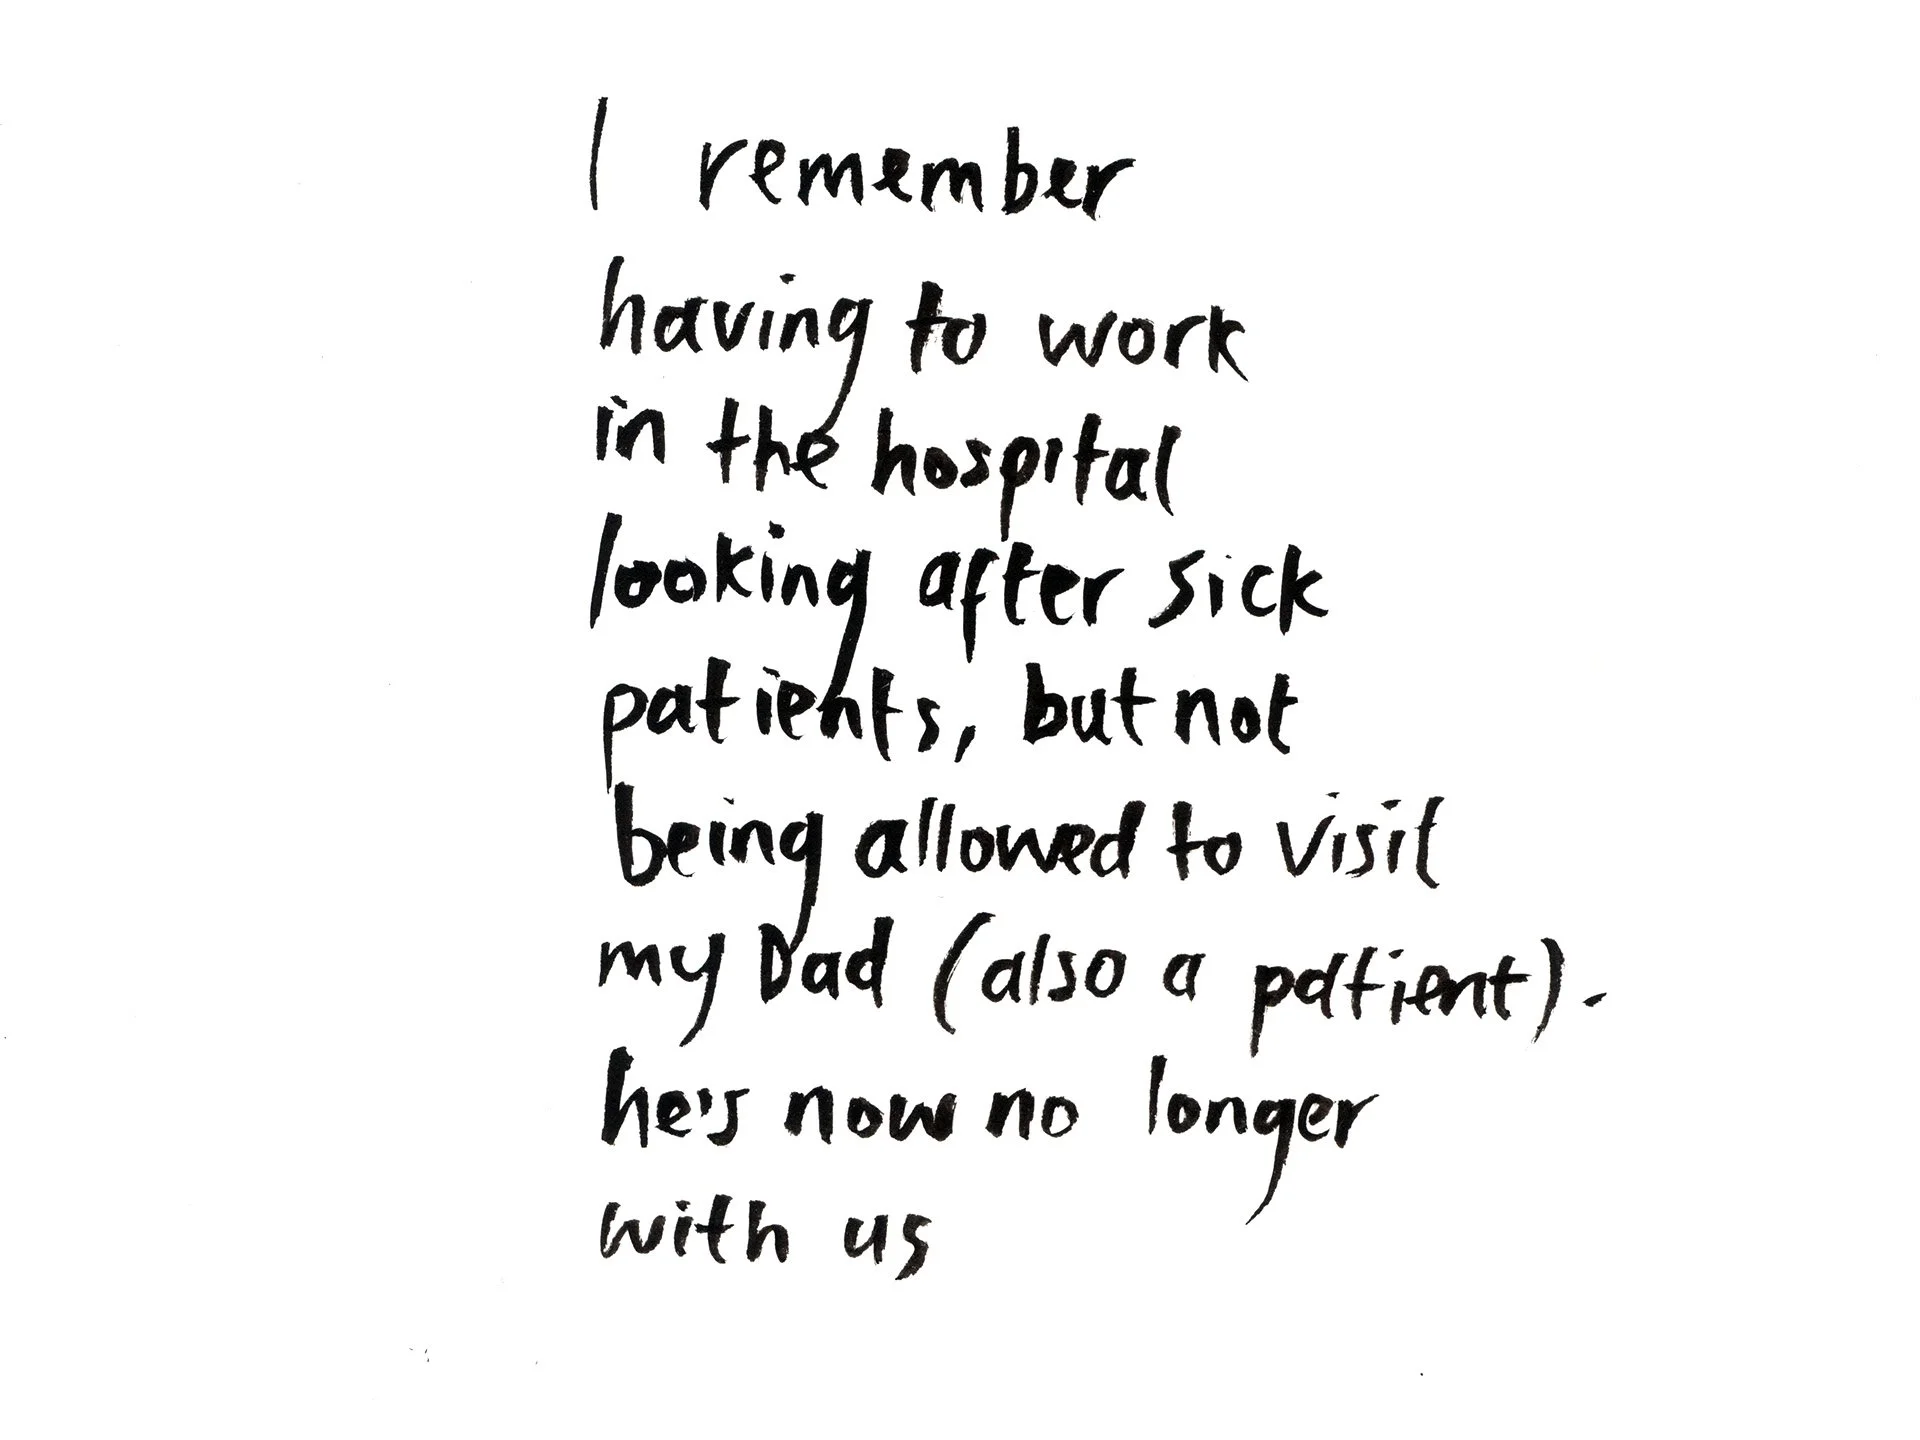 I remember
having to work
in the hospital
looking after sick
patients, but not
being allowed to visit
my Dad (also a patient).
he's now no longer
with us